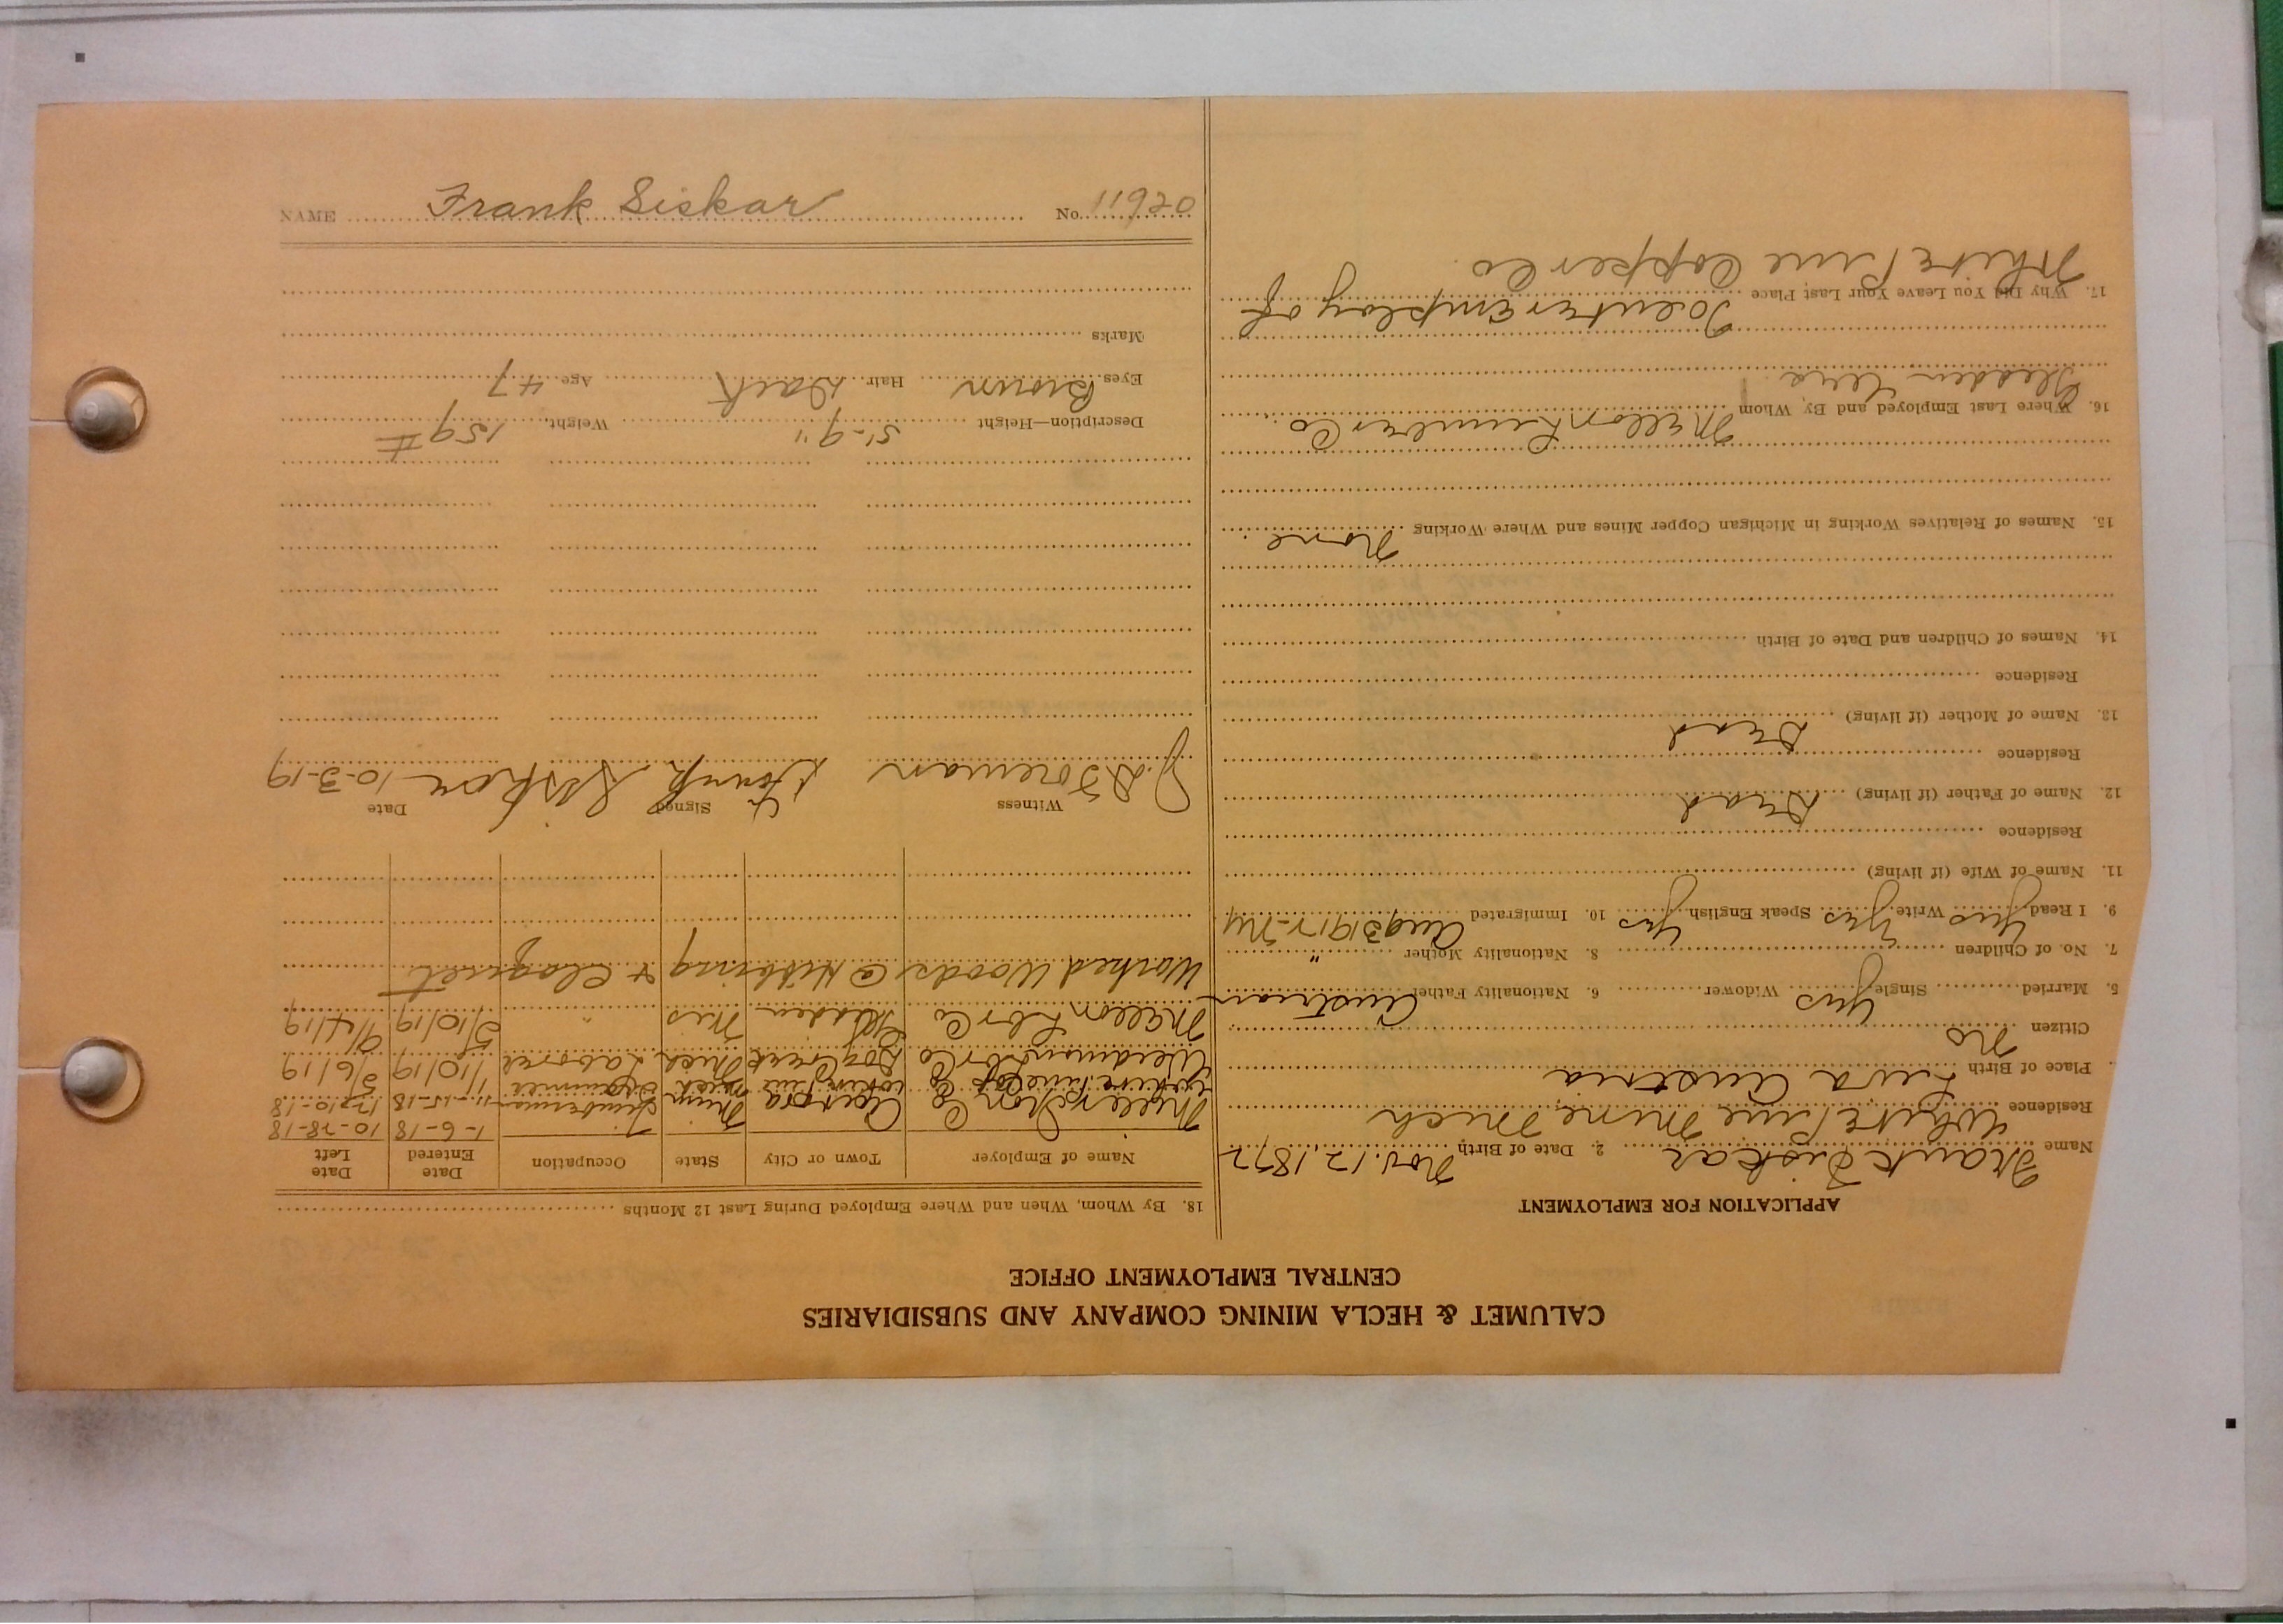 CALUMET & HECLA MINING COMPANY AND SUBSIDIARIES
CENTRAL EMPLOYMENT OFFICE
APPLICATION FOR EMPLOYMENT
Name Frank Siskar 2. Date of Birth Nov. 12, 1872
Residence White Pine Mine Mich
Place of Birth Austria
Citizen No
5. Married Single Yes Widower 6. Nationality Father Austrian
7. No. of Children 8. Nationality Mother "
9. I Read Yes Write Yes Speak English Yes 10. Immigrated Aug 3 1912 - NY
11. Name of Wife (if living)
Residence
12. Name of Father (if living) Dead
Residence
13. Name of Mother (if living) Dead
Residence
14. Names of Children and Date of Birth
15. Names of Relatives Working in Michigan Copper Mines and Where Working None
16. Where Last Employed and By Whom Mellon Lumber Co.
Glidden
17. Why Did You Leave Your Last Place To enter Employ of
White Pine Copper Co.
18. By Whom, When and Where Employed During Last 12 Months
Name of Employer Town or City State Occupation Date Entered Date Left
Miller Iron Co Aurora Minn Timberman 1-6-18 10-28-18
White Pine Cop Co White Pine Mich Trammer 11-15-18 12-10-18
Lbr Co Mich Laborer 1/10/19 5/6/19
Mellon Lbr Co Glidden Wis " 5/10/19 9/4/19
Worked Woods @ Hibbing & Cloquet
Witness Signed Date
J. D. Foreman Frank Siskar 10-3-19
Description—Height 5'-9" Weight 159 #
Eyes Brown Hair Dark Age 47
Marks
NAME Frank Siskar No. 11920